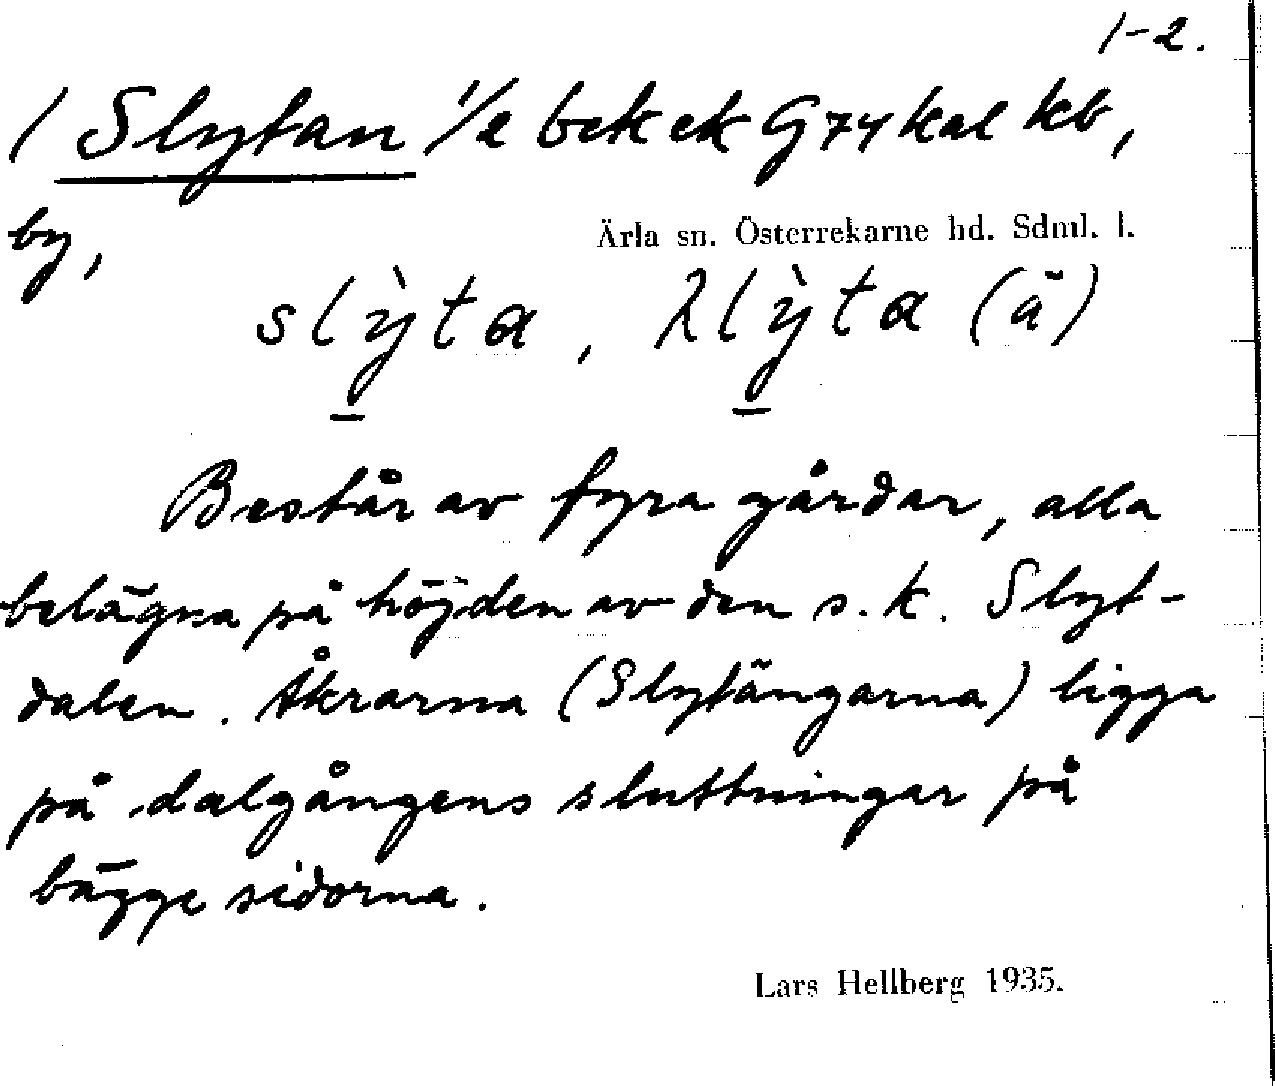 1-2.
/ Slytan 1/2 bek ek G74 kal kb,
by,
Ärla sn. Österrekarne hd. Sdml. l.
slỳta, λlỳta (ä)
Består av fyra gårdar, alla
belägna på höjden av den s.k. Slyt-
dalen. Åkrarna (Slytängarna) ligga
på dalgångens sluttningar på
bägge sidorna.
Lars Hellberg 1935.